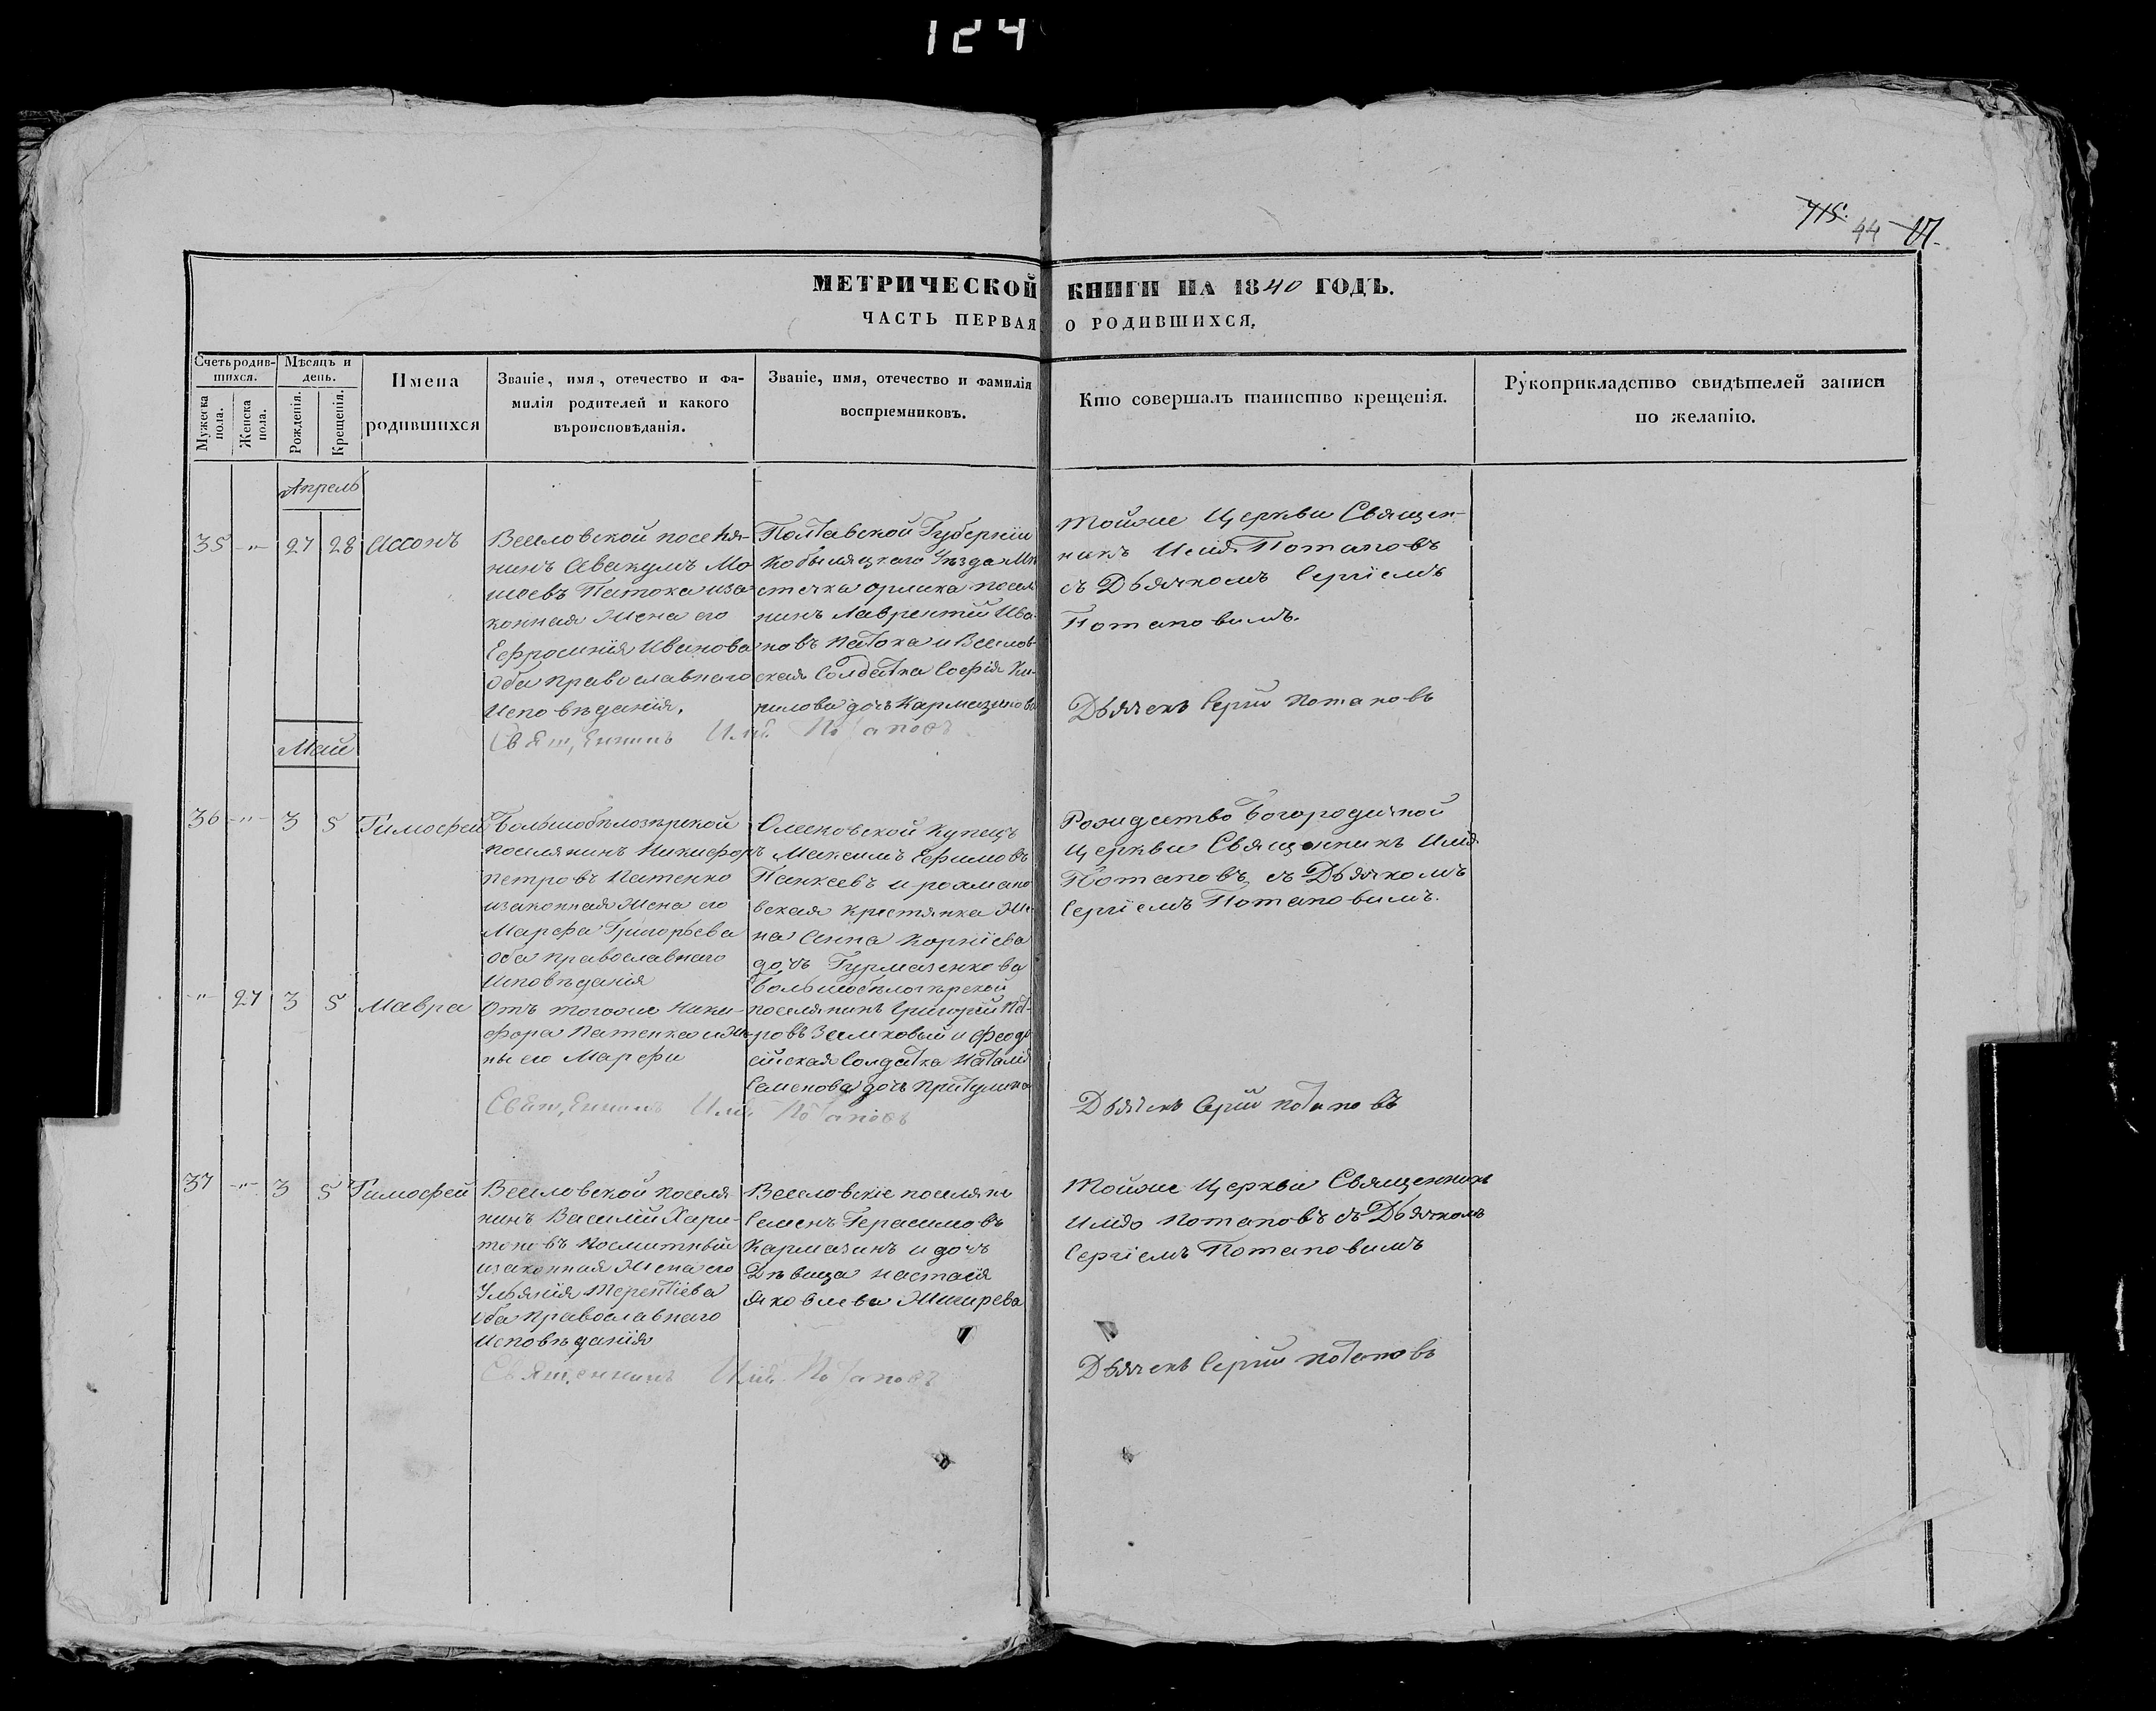 124
715.
44
МЕТРИЧЕСКОЙ КНИГИ НА 1840 ГОДЪ.
ЧАСТЬ ПЕРВАЯ О РОДИВШИХСЯ.
Счетъ родив-
шихся.
Мужеска
пола.
Женска
пола.
Мѣсяцъ и
день.
Рожденія.
Крещенія.
Имена
родившихся
Званіе, имя, отечество и фа-
милія родителей и какого
вѣроисповѣданія.
Званіе, имя, отечество и фамилія
воспріемниковъ.
Кто совершалъ таинство крещенія.
Рукоприкладство свидѣтелей записи
по желанію.
Апрель
35 -"- 27 28 Иасонъ
Веселовской поселя-
нинъ Авакумъ Мо
исеевъ Патока иза
конная Жена его
Ефросинія Иванова
Оба православнаго
Исповѣданія.
Полтавской Губерніи
Кобыляцкаго Уѣзда Мѣ
стечка орлика посел
нинъ Лаврентій Ива
новъ Патока и Веселов
ская Солдатка Софія Ки-
рилова дочь Кармазинова
тойже Церкви Священ-
никъ Илія Потаповъ
съ Дьячкомъ Сергіемъ
Потаповимъ.
Дьячекъ Сергій Потаповъ
Священникъ Илія Потаповъ
Май
36 -"- 3 5 Тимофей
Большобѣлозѣрской
поселянинъ Никифоръ
Петровъ Патенко
изаконная Жена его
Марфа Григорьева
оба православнаго
Исповѣданія
Олешковской Купецъ
Максимъ Ефимовъ
Панкеевъ и рохмано
вская крестянка Же-
на Анна Корніева
дочь Гурмазенкова
Рождество Богородичной
Церкви Священникъ Илія
Потаповъ съ Дьячкомъ
Сергіемъ Потаповимъ.
-"- 27 3 5 Мавра
Отъ тогоже Ники-
фора Патенка и Же-
ны его Марфи
Большобѣлозѣрской
поселянинъ Григорій Пет-
ровъ Землковый и Феодо
сійская Солдатка Наталія
Семенова дочь Притулина
Священникъ Илія Потаповъ
Дьячекъ Сергій Потаповъ
37 -"- 3 5 Тимофей
Веселовской поселя
нинъ Василій Хари-
тоновъ Посмитный
изаконная Жена его
Ульянія Терентіева
оба православнаго
Исповѣданія
Веселовскіе поселяне
Семенъ Герасимовъ
Кармазинъ и дочь
Дѣвица Настасія
Яковлева Жигирева
Тойже Церкви Священникъ
Илія Потаповъ съ Дьячкомъ
Сергіемъ Потаповимъ
Священникъ Илія Потаповъ
Дьячекъ Сергій Потаповъ